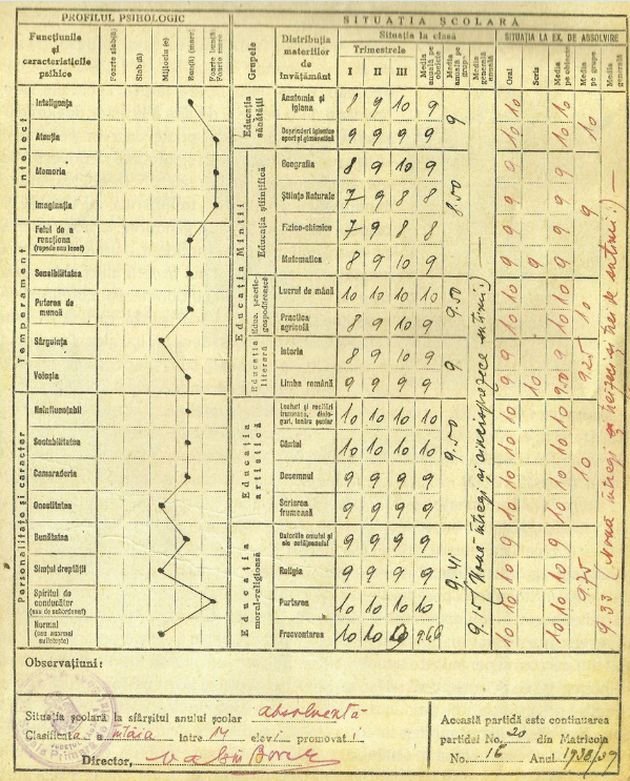 PROFILUL PSIHOLOGIC
SITUAȚIA ȘCOLARĂ
Funcțiunile și caracteristicile psihice
Foarte slab(ă)
Slab(ă)
Mijlociu (e)
Bun(ă) (mare)
Foarte bun(ă) Foarte mare
Grupele
Distribuția materiilor de învățământ
Situația la clasă
Trimestrele
I II III
Media anuală pe obiecte
Media anuală pe grupe
Media generală anuală
SITUAȚIA LA EX. DE ABSOLVIRE
Oral
Scris
Media pe obiecte
Media pe grupe
Media generală
Intelect
Inteligența
Atenția
Memoria
Imaginația
Temperament
Felul de a reacționa (repede sau încet)
Sensibilitatea
Puterea de muncă
Sârguința
Voioșia
Personalitate și caracter
Neinfluențabil
Sociabilitatea
Camaraderia
Onestitatea
Bunătatea
Simțul dreptății
Spiritul de conducător (sau de subordonat)
Normal (sau anormal sufletește)
Educația sănătății
Anatomia și igiena 8 9 10 9 9 10 10 10 10
Deprinderi igienice sport și gimnastică 9 9 9 9 10 10
Educația Minții
Educația științifică
Geografia 8 9 10 9 8.50 9 9 9
Științe Naturale 7 9 8 8 9 9
Fizico-chimice 7 9 8 8 9 9
Matematica 8 9 10 9 9 9 9
Educ. practic-gospodărească
Lucrul de mână 10 10 10 10 9.50 10 10 10
Practica agricolă 8 9 10 9 10 10
Educația literară
Istoria 8 9 10 9 9 9 9 9.25
Limba română 9 9 9 9 9 10 9.50
Educația artistică
Lecturi și recitări frumoase, dialoguri, teatru școlar 10 10 10 10 9.50 10 10 10
Cântul 10 10 10 10 10 10
Desemnul 9 9 9 9 10 10
Scrierea frumoasă 9 9 9 9 10 10
Educația moral-religioasă
Datoriile omului și ale cetățeanului 9 9 9 9 9.41 9 9 9.75
Religia 9 9 9 9 10 10
Purtarea 10 10 10 10 10 10
Frecventarea 10 10 9 9.66 10 10
9.15 (Nouă întregi și cincisprezece sutimi.)
9.33 Nouă întregi și treizeci și trei de sutimi.)
Observațiuni:
Situația școlară la sfârșitul anului școlar absolventă
Clasificată a întâia între 14 elevi promovați
Director,
Această partidă este continuarea
partidei No. 20 din Matricola
No. 16 Anul 1938/39